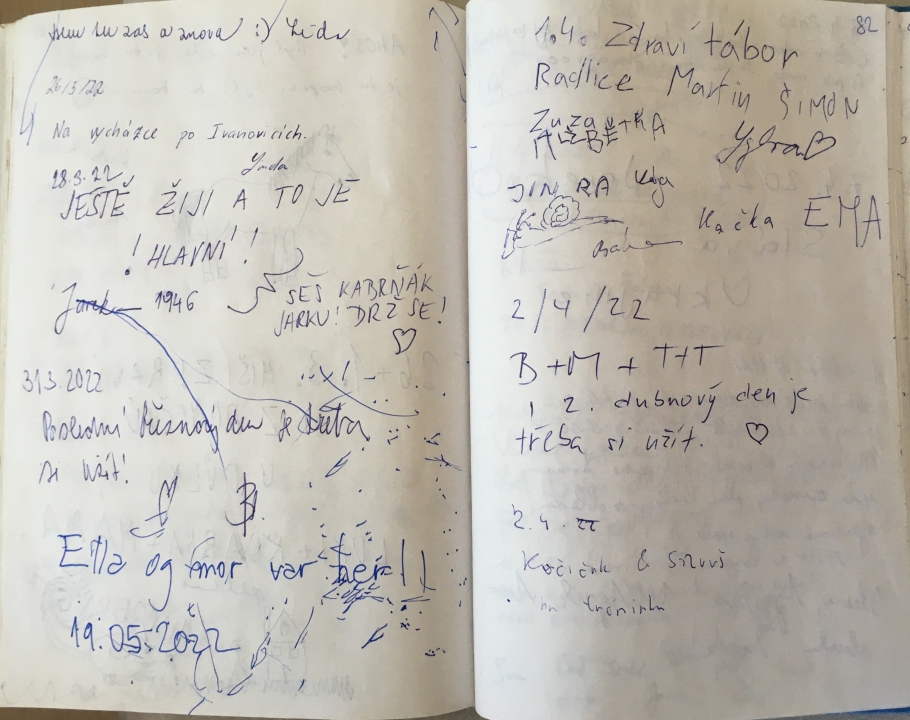 Jsme tu zas a znova :) Lída
26/3/22
Na vycházce po Ivanovicích.
28.3.22
JEŠTĚ ŽIJI A TO JE
! HLAVNÍ !
Jarek 1946
SEŠ KABRŇÁK
JARKU! DRŽ SE!
31.3.2022
Poslední březnový den je třeba
si užít!
Ella og mor var her!!
19.05.2022
82
1.4. Zdraví tábor
Radlice Martin ŠIMON
Zuzana
JINDRA
Kačka EMA
2/4/22
B+M + T+T
I 2. dubnový den je
třeba si užít.
2.4. 22
Kočičák &
na tréninku